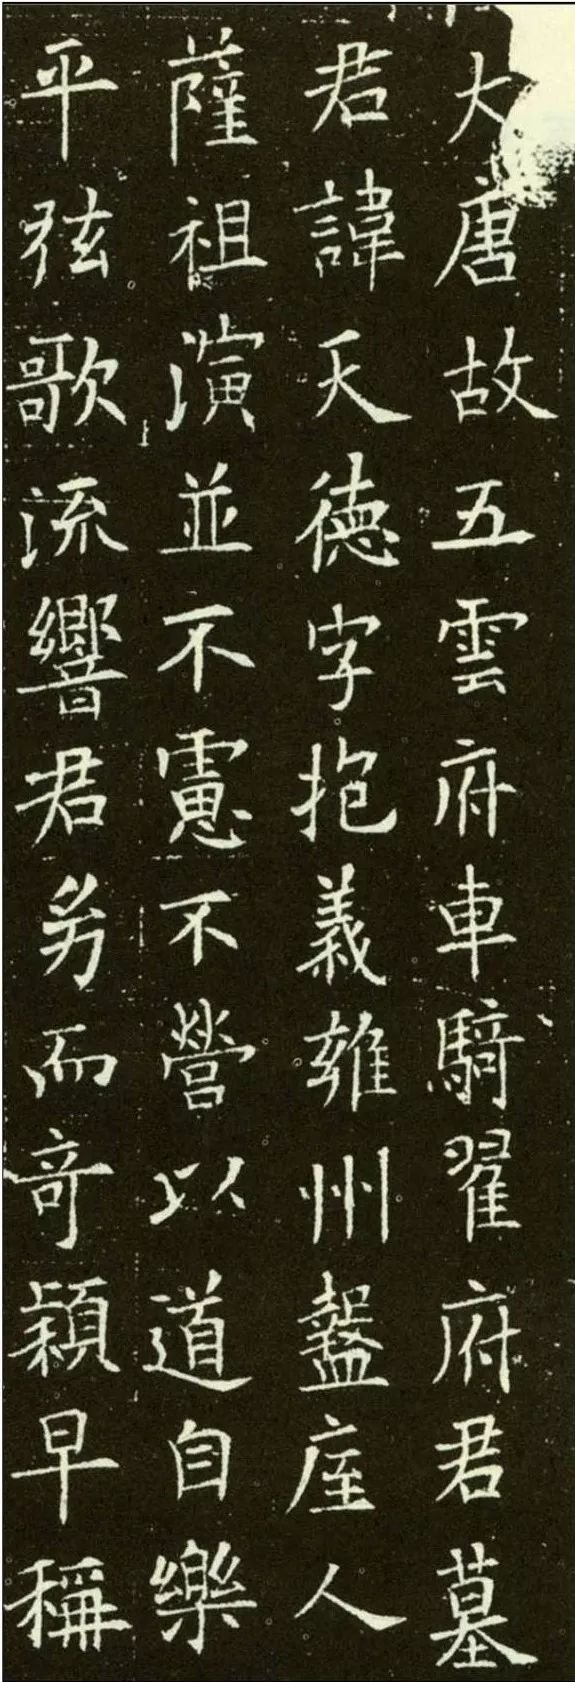 大唐故五雲府車騎翟府君墓
君諱天德字抱義雍州盩庢人
薩祖演並不慮不營以道自樂
平弦歌流響君勞而奇穎早稱